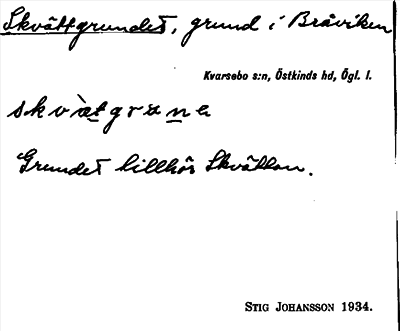 Skvättgrundet, grund i Bråviken
Kvarsebo s:n, Östkinds hd, Ögl. l.
skvætgrune
Grundet tillhör Skvättan.
STIG JOHANSSON 1934.